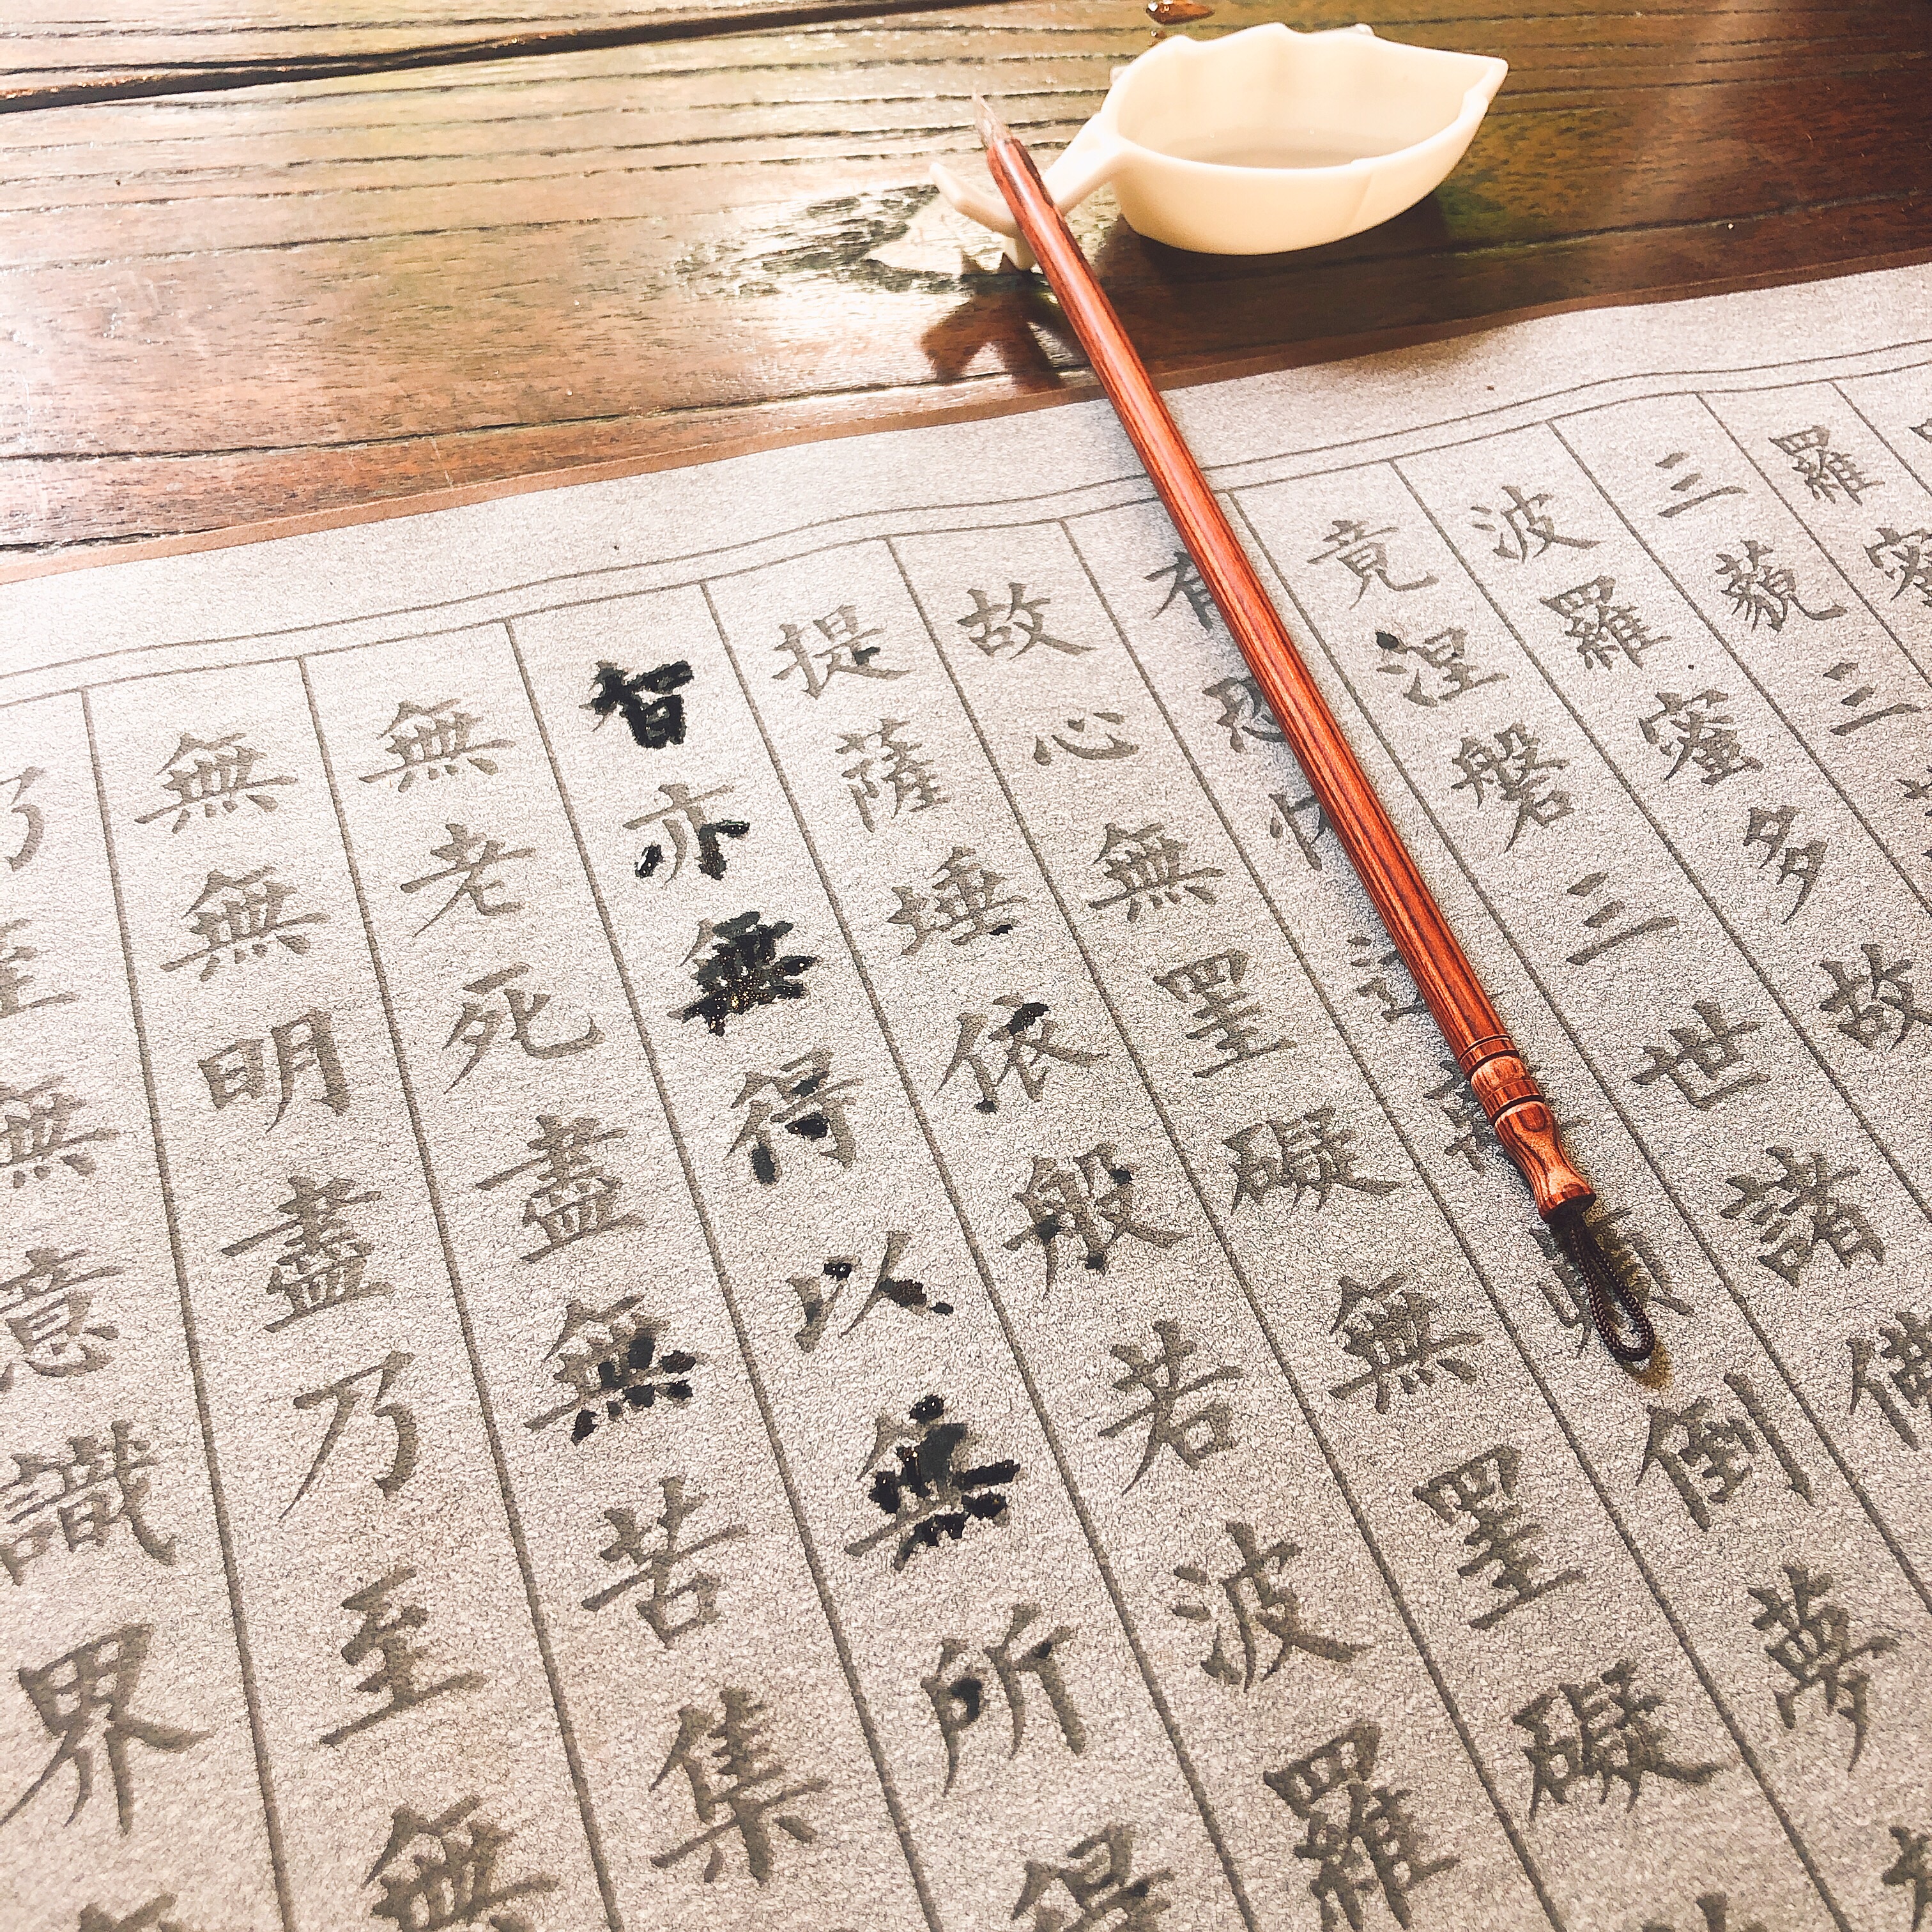 乃至無意識界
無無明盡乃至無
無老死盡無苦集
智亦無得以無所得
提薩埵依般若波羅
故心無罣礙無罣礙
有倒夢
竟涅槃三世諸
波羅蜜多故
三藐三
羅蜜